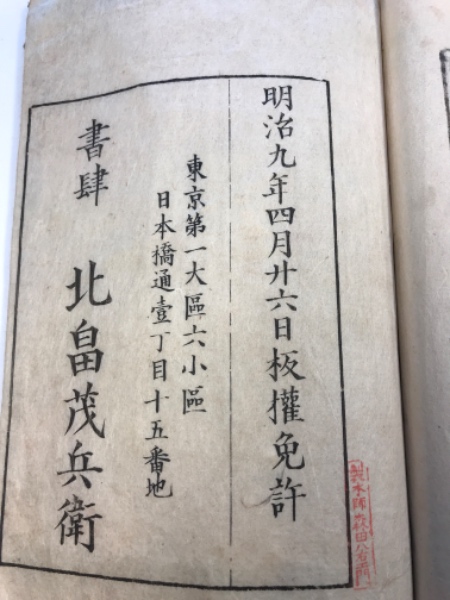 明治九年四月廿六日板權免許
東京第一大區六小區
日本橋通壹丁目十五番地
書肆 北畠茂兵衛
製本師